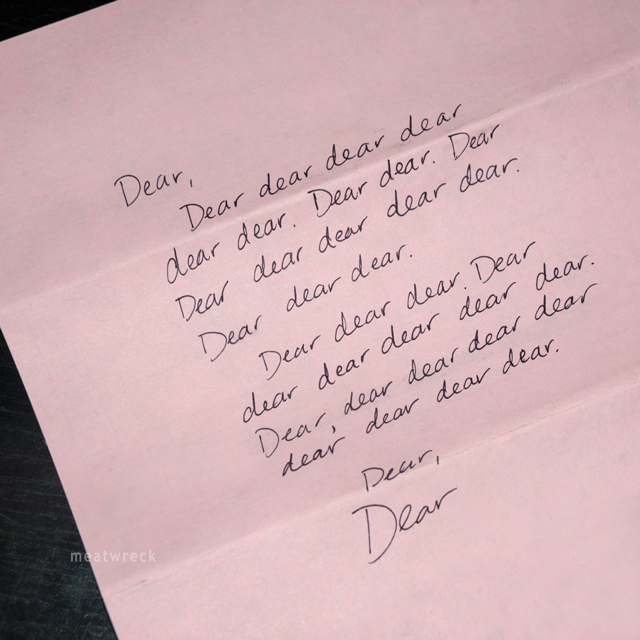 Dear,
Dear dear dear dear
dear dear. Dear dear. Dear
Dear dear dear dear dear.
Dear dear dear.
Dear dear dear. Dear
dear dear dear dear dear.
Dear, dear dear dear dear
dear dear dear dear.
Dear,
Dear
meatwreck